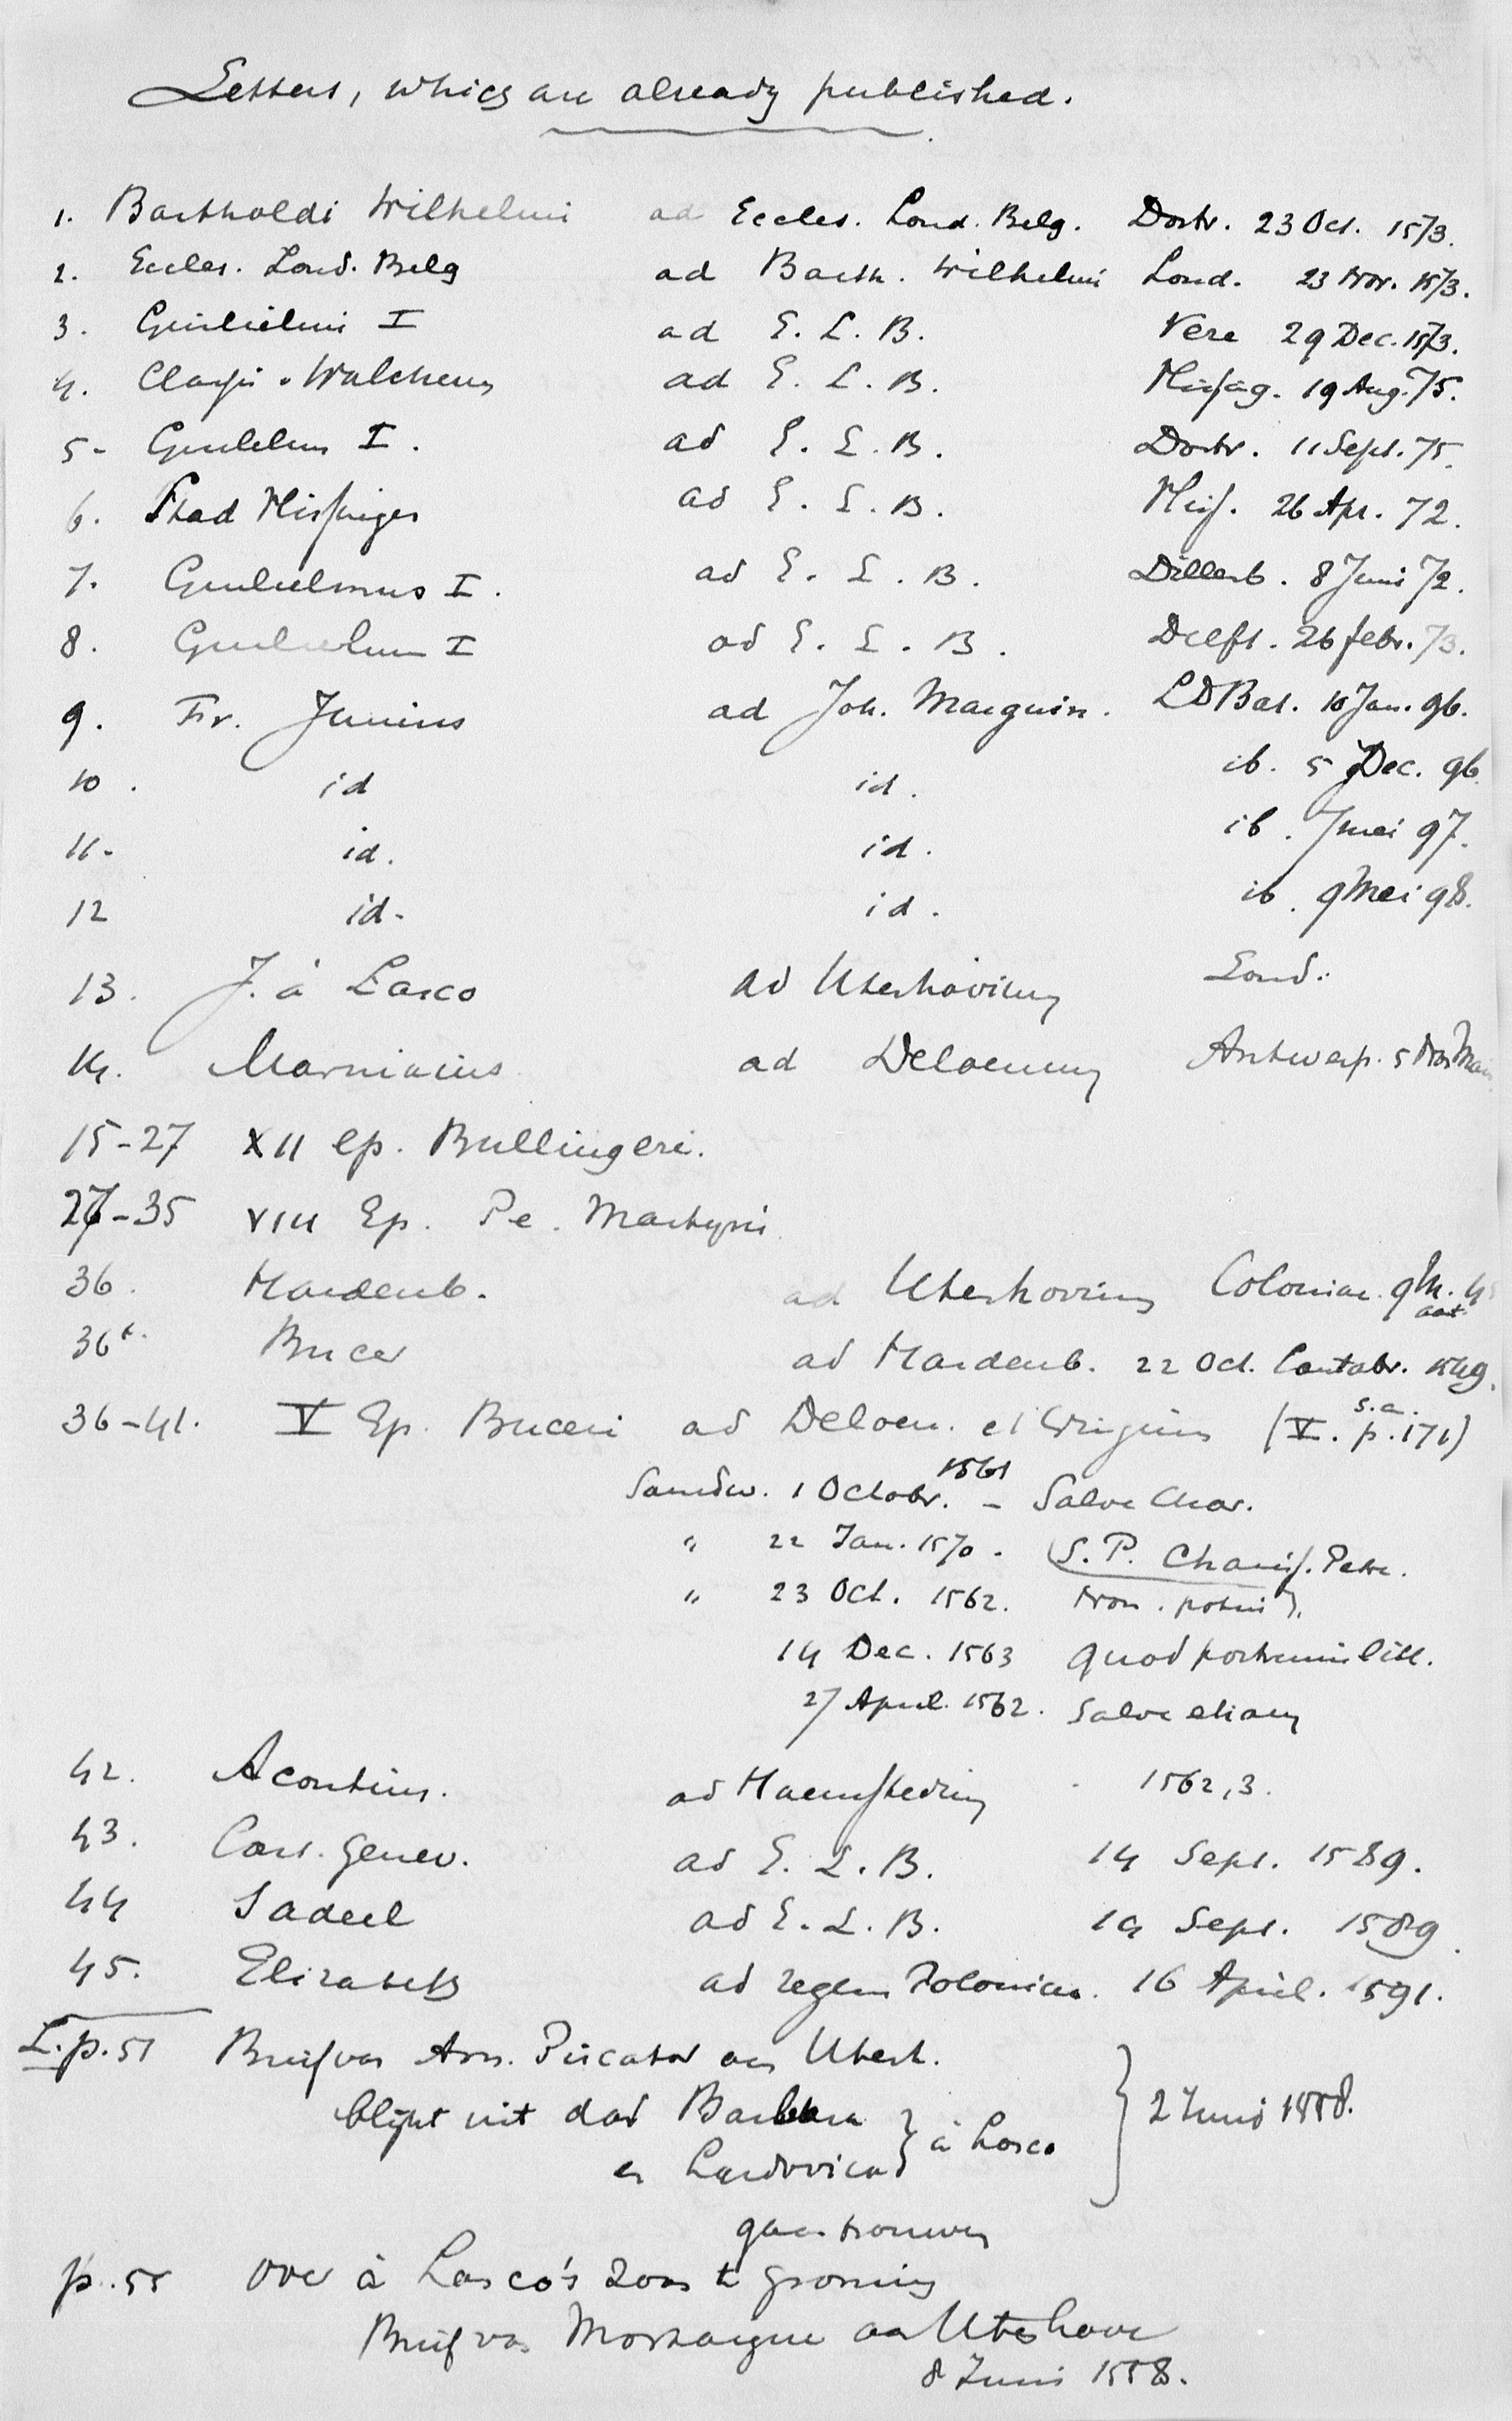 Letters, which are already published.
1. Bartholdi Wilhelmi ad Eccles. Lond. Belg. Dortr. 23 Oct. 1573.
2. Eccles. Lond. Belg ad Barth. Wilhelmi Lond. 23 Nov. 1573.
3. Guilielmi I ad E. L. B. Vere 29 Dec. 1573.
4. Walcheren ad E. L. B. 19 Aug. 75.
5- Guilielmus I. ad E. L. B. Dortr. 11 Sept. 75.
6. Stad Vlissingen ad E. L. B. Vliss. 26 Apr. 72.
7. Guilielmus I. ad E. L. B. Dillenb. 8 Juni 72.
8. Guilielmum I ad E. L. B. Delft. 26 febr. 73.
9. Fr. Junius ad Joh. Marquin. LDBat. 10 Jan. 96.
10. id id. ib. 5 Dec. 96.
11. id. id. ib. 7 mei 97.
12 id. id. ib. 9 Mei 98.
13. J. à Lasco ad Utenhovium Lond.
14. Marnixius ad Deloenum Antwerp. 5
15-27 XII ep. Bullingeri.
27-35 VIII Ep. Pe. Martyris
36. Hardenb. ad Utenhovium Coloniae.
36 Bucer ad Hardenb. 22 Oct. Cantabr. 1549.
36-41. V Ep. Buceri ad Deloen. et (V. p. 171)
s.a.
Sandw. 1 Octobr. 1561 - Salve Char.
" 22 Jan. 1570. S. P. Chariss. Petre.
" 23 Oct. 1562. Non. potui
14 Dec. 1563 quod litt.
27 April. 1562. Salve etiam
42. Acontius. ad Haemstedium 1562,3.
43. Cons. Genev. ad E. L. B. 14 Sept. 1589.
44 Sadeel ad E. L. B. 19 Sept. 1589.
45. Elizabeth ad regem Poloniae. 16 April. 1591.
L. p. 51 Brief van Arn. Piscator aan Utenh.
blijkt uit dat Barbara
en Ludovica } à Lasco } 2 Juni 1558.
gaan trouwen
p. 55 over à Lasco's zoon te Groning
Brief van Mortaigne aan Utenhove
8 Juni 1558.